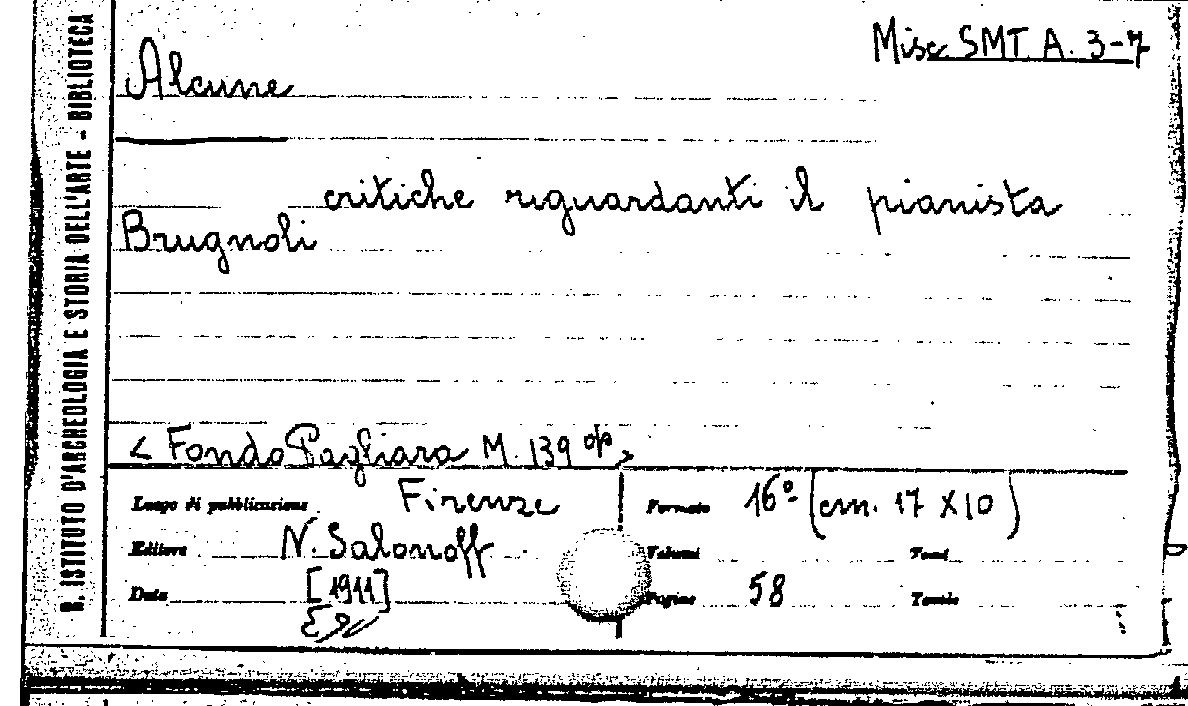 Misc SMT. A. 3-7
Alcune
critiche riguardanti il pianista
Brugnoli
< Fondo Pagliara M. 139 op>
Luogo di pubblicazione Firenze
Editore N. Salonoff
Data [1911]
Formato 16º (cm. 17 X 10)
Volumi Tomi
Pagine 58 Tavole
R. ISTITUTO D'ARCHEOLOGIA E STORIA DELL'ARTE - BIBLIOTECA